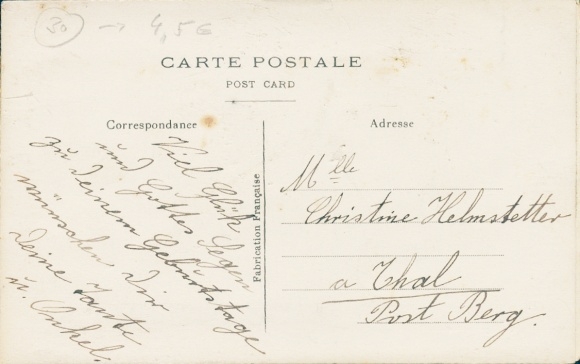 30 → 4,5€
CARTE POSTALE
POST CARD
Correspondance
Adresse
Viel Glück
und Gottes Segen
zu deinem Geburtstage
wünschen dir
deine Tante
u. Onkel.
Fabrication Française
Mlle
Christine Helmstetter
a Thal
Post Berg.